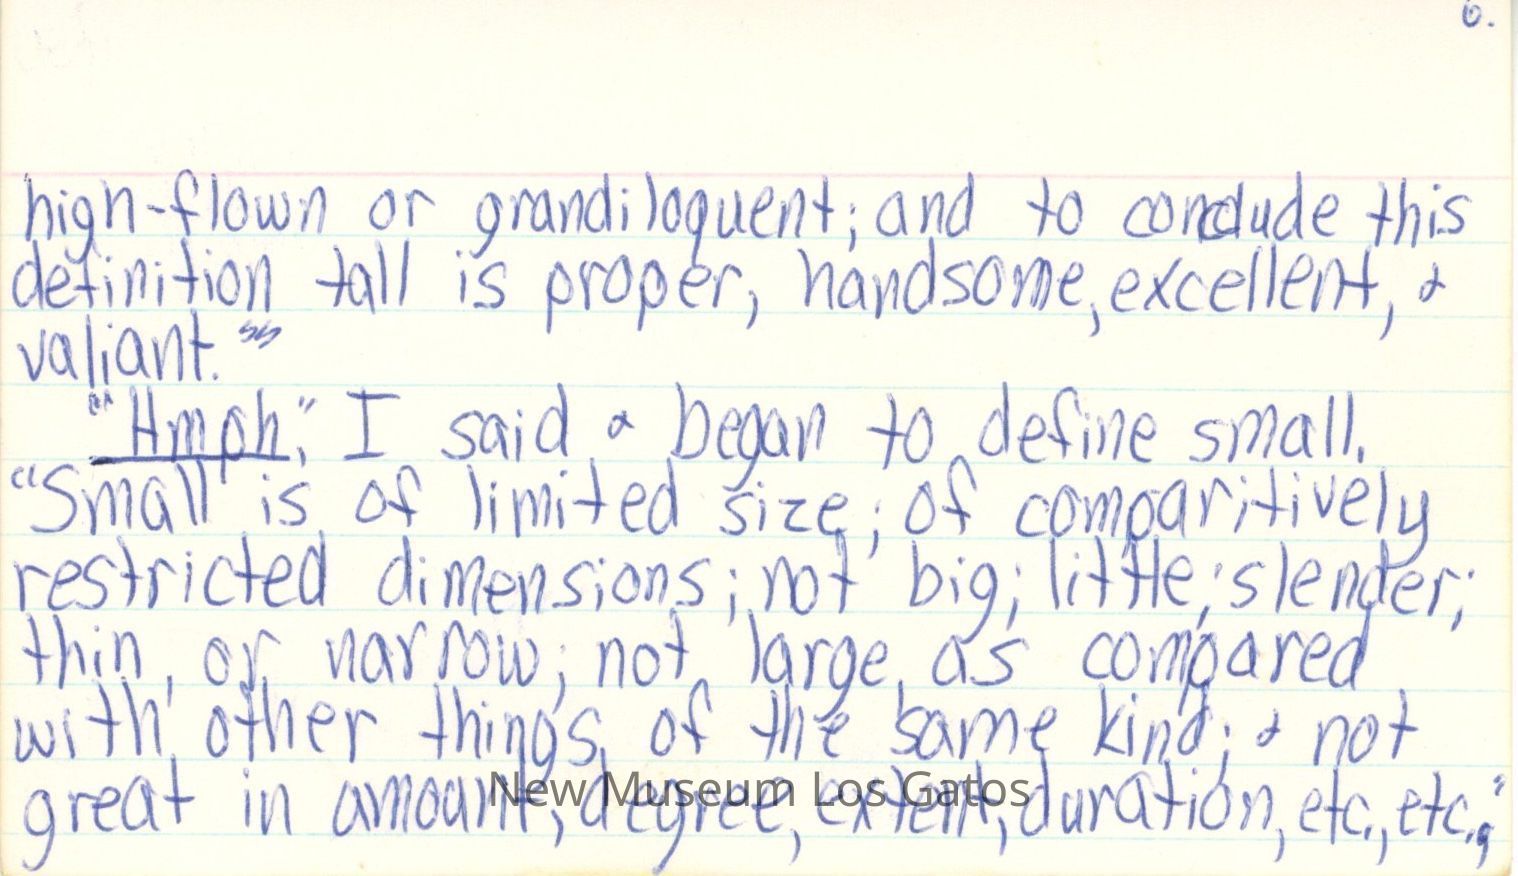 6.
high-flown or grandiloquent; and to conclude this
definition tall is proper, handsome, excellent, &
valiant."
"Hmph," I said & began to define small.
"Small is of limited size; of comparitively
restricted dimensions; not big; little; slender;
thin, or narrow; not large, as compared
with other things of the same kind; & not
great in amount, degree, extent, duration, etc., etc.,"
New Museum Los Gatos